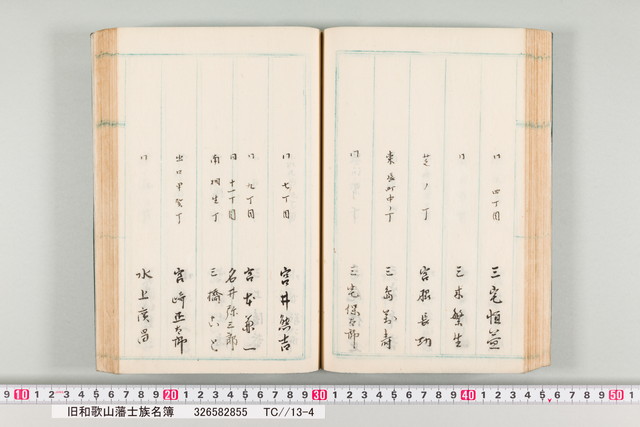 〃 四丁目 三宅恒益
〃 三木繁生
芝ノ丁 宮根長
東 町中ノ丁 三 寿
〃 三宅保太郎
〃 七丁目 宮井熊吉
〃 九丁目 宮本 一
同 十一丁目 名井弥三郎
南相生丁 三橋
出口甲賀丁 宮崎正太郎
〃 水上広昌
9 10 1 2 3 4 5 6 7 8 9 20 1 2 3 4 5 6 7 8 9 30 1 2 3 4 5 6 7 8 9 40 1 2 3 4 5 6 7 8 9 50
旧和歌山藩士族名簿 326582855 TC//13-4